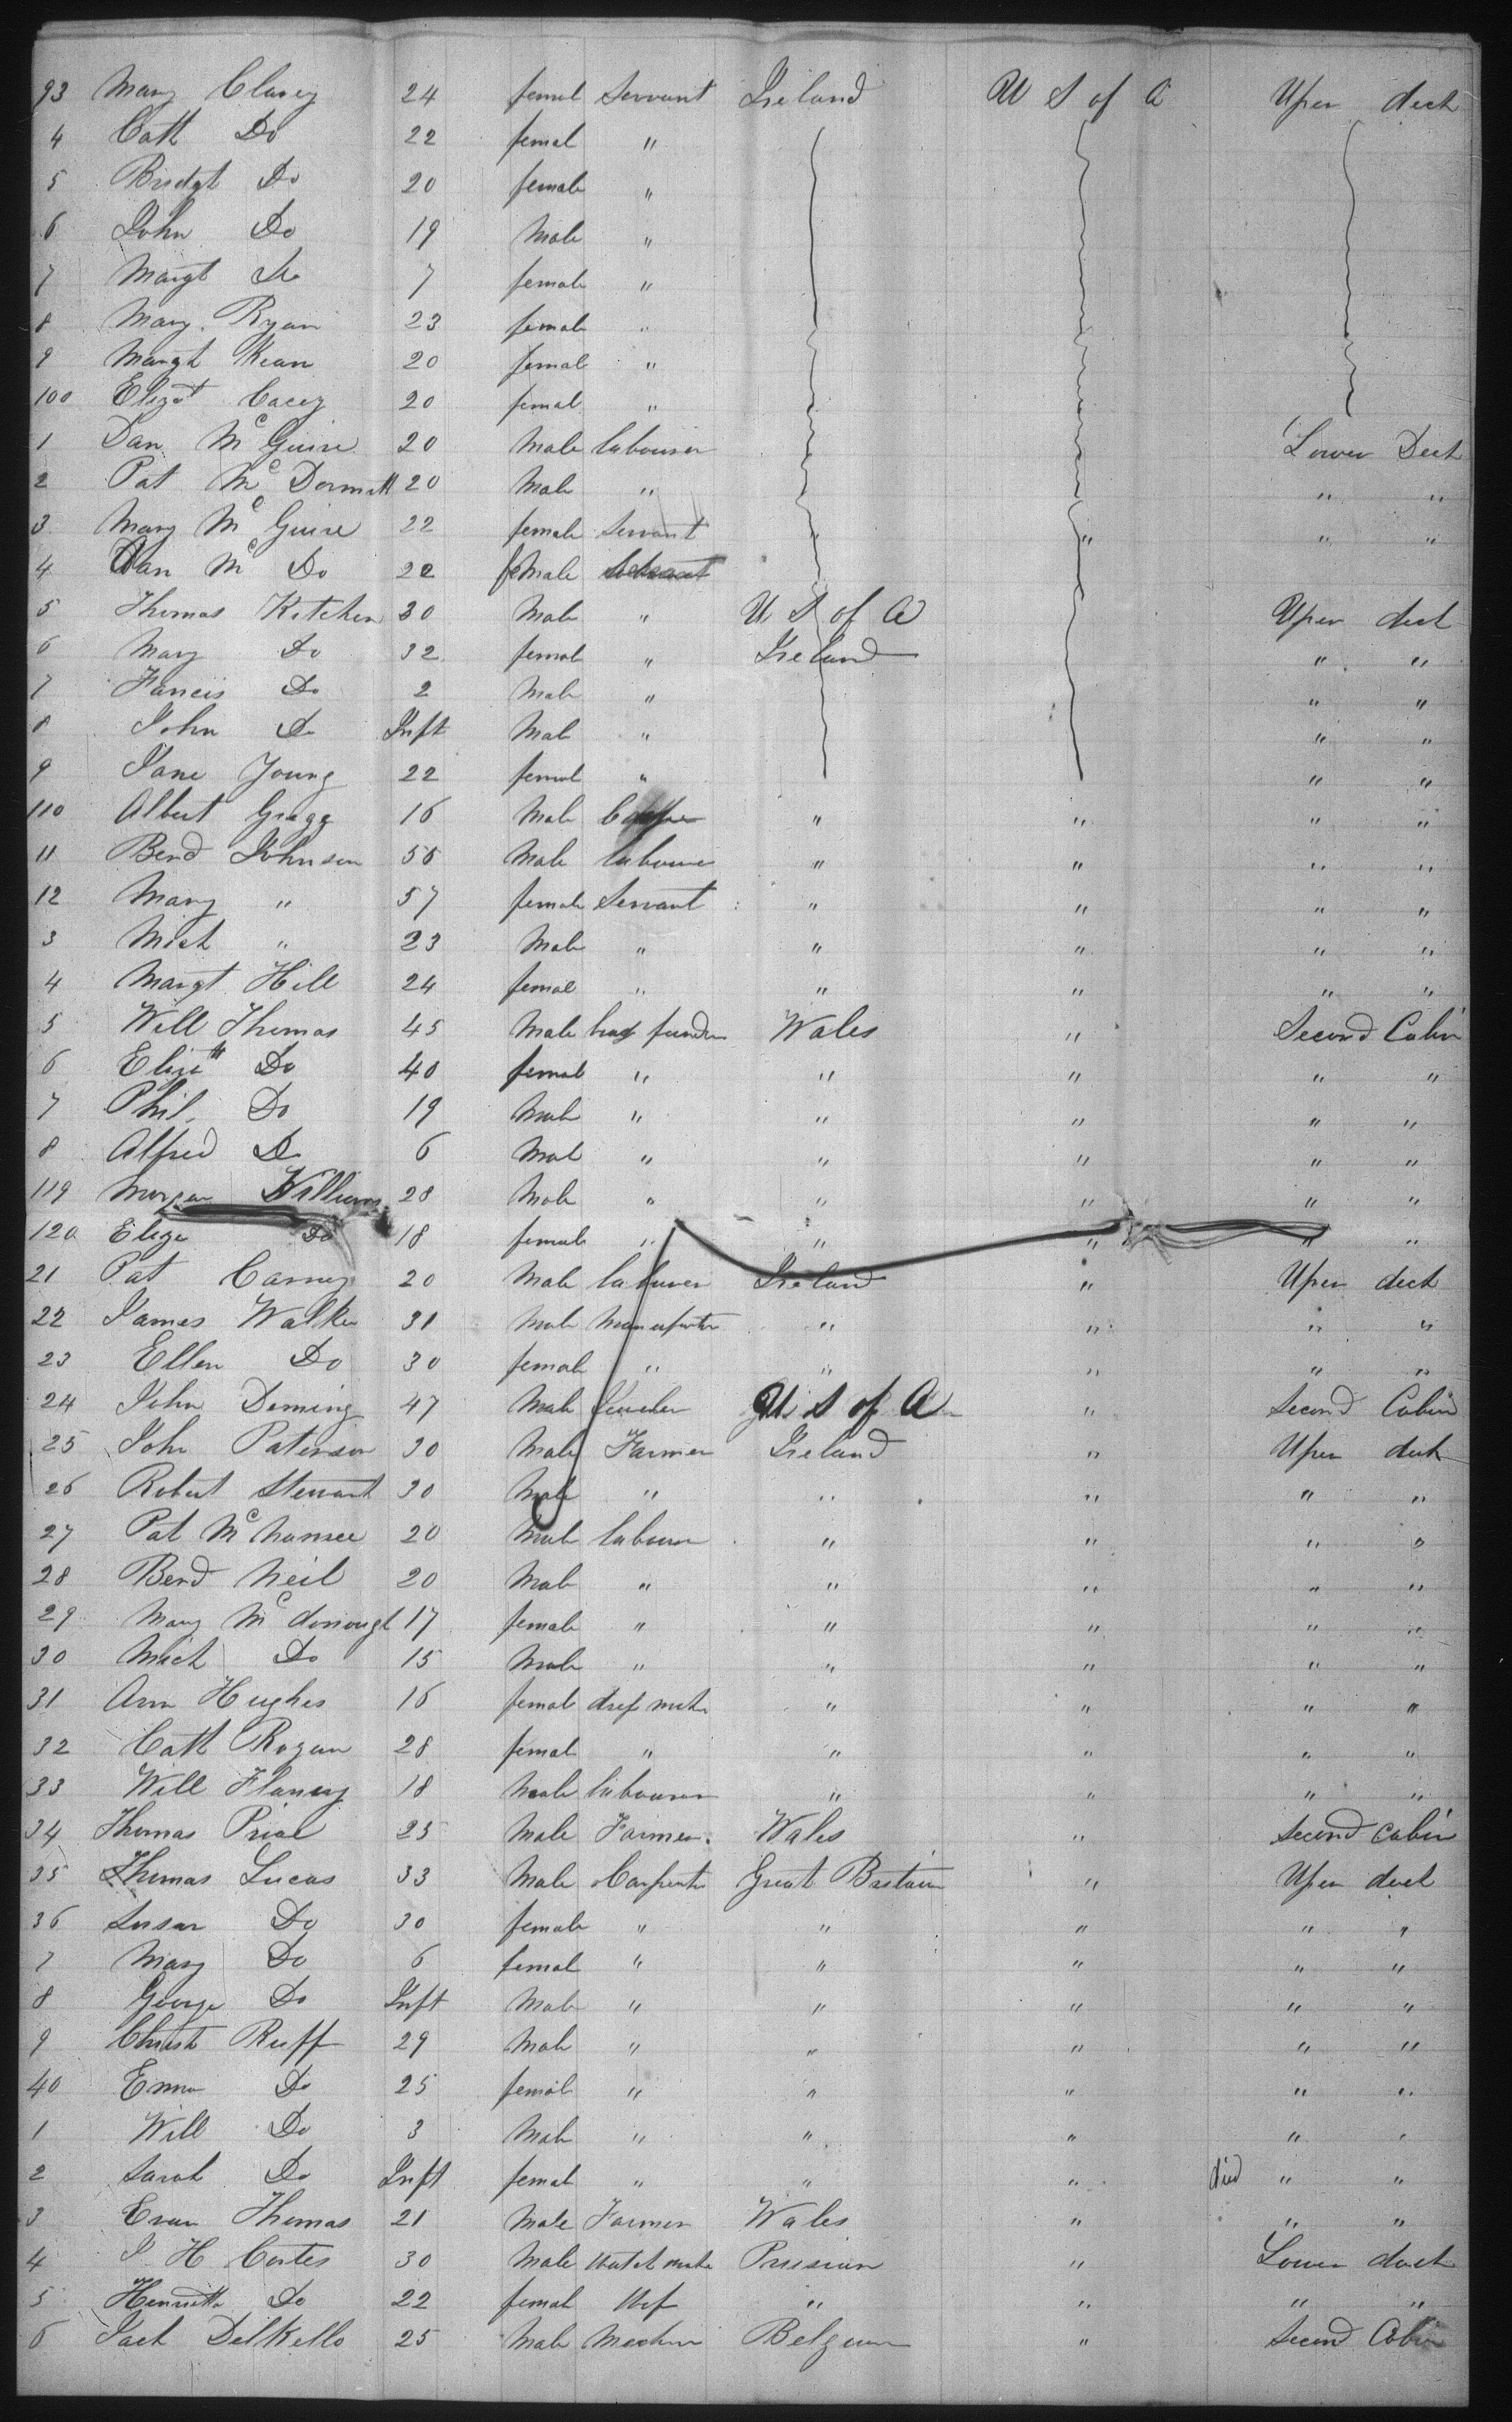 93 Mary Clasey 24 femal Servant Ireland U S of A Uper deck
4 Cath Do 22 femal "
5 Bridgt Do 20 female "
6 John Do 19 Male "
7 Margt Do 7 female "
8 Mary Ryan 23 female "
9 Margt Kean 20 femal "
100 Elizat Cacey 20 femal "
1 Dan McGuire 20 Male labourer Lower Deck
2 Pat McDermatt 20 Male " " "
3 Mary McGuire 22 female Servant " " " "
4 Dan Mc Do 22 feMale
5 Thomas Kitchen 30 Male " U S of A Uper deck
6 Mary Do 32 female " Ireland " "
7 Francis Do 2 Male " " "
8 John Do Inft Male " " "
9 Jane Young 22 femal " " "
110 Albert Gragg 16 Male " " " "
11 Bend Johnson 56 Male labourer " " " "
12 Mary " 57 female Servant " " " "
3 Mich " 23 Male " " " " "
4 Margt Hill 24 femal " " " " "
5 Will Thomas 45 Male founder Wales " Second Cabin
6 Elizth Do 40 femal " " " " "
7 Phil. Do 19 Male " " " " "
8 Alfred Do 6 Mal " " " " "
119 Morgan Williams 28 Male " " " " "
120 Eliza Do 18 female " " " " "
21 Pat Carney 20 Male labourer Ireland " Uper deck
22 James Walker 31 Male " " " "
23 Ellen Do 30 female " " " " "
24 John Deming 47 Male Jeweler U S of A " Second Cabin
25 John Paterson 30 Male Farmer Ireland " Uper deck
26 Robert Stewart 30 Male " " " " "
27 Pat McNamee 20 Male labourer " " " "
28 Bend Neil 20 Male " " " " "
29 Mary McDonough 17 female " " " " "
30 Mich Do 15 Male " " " " "
31 Ann Hughes 16 female dress maker " " " "
32 Cath Rogan 28 femal " " " " "
33 Will Flaney 18 Male labourer " " " "
34 Thomas Price 25 Male Farmer Wales " Second Cabin
35 Thomas Lucas 33 Male Carpenter Great Britain " Uper deck
36 Susan Do 30 female " " " " "
7 Mary Do 6 femal " " " " "
8 George Do Inft Male " " " " "
9 Christ Ruff 29 Male " " " " "
40 Emma Do 25 female " " " " "
1 Will Do 3 Male " " " " "
2 Sarah Do Inft femal " " " died " "
3 Evan Thomas 21 Male Farmer Wales " " "
4 J H Contes 30 Male watch maker Prusian " Lower deck
5 Henrietta Do 22 femal Wif " " " "
6 Jack Delkello 25 Male Belgeum " Second Cabin